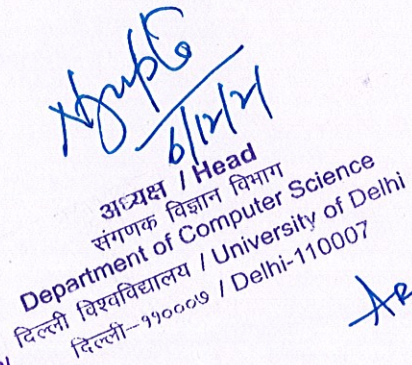 6/12/21
अध्यक्ष / Head
संगणक विज्ञान विभाग
Department of Computer Science
दिल्ली विश्वविद्यालय / University of Delhi
दिल्ली-११०००७ / Delhi-110007